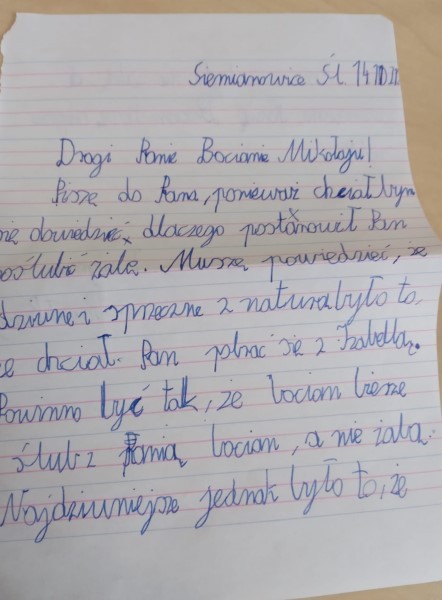 Siemianowice Śl. 14
Drogi Panie Bocianie Mikołaju!
Piszę do Pana, ponieważ chciałbym
się dowiedzieć, dlaczego postanowił Pan
poślubić żabę. Muszę powiedzieć, że
dziwne i sprzeczne z naturą było to,
że chciał Pan pobrać się z Izabellą.
Powinno być tak, że bocian bierze
ślub z panią bocian, a nie żabą.
Najdziwniejsze jednak było to, że